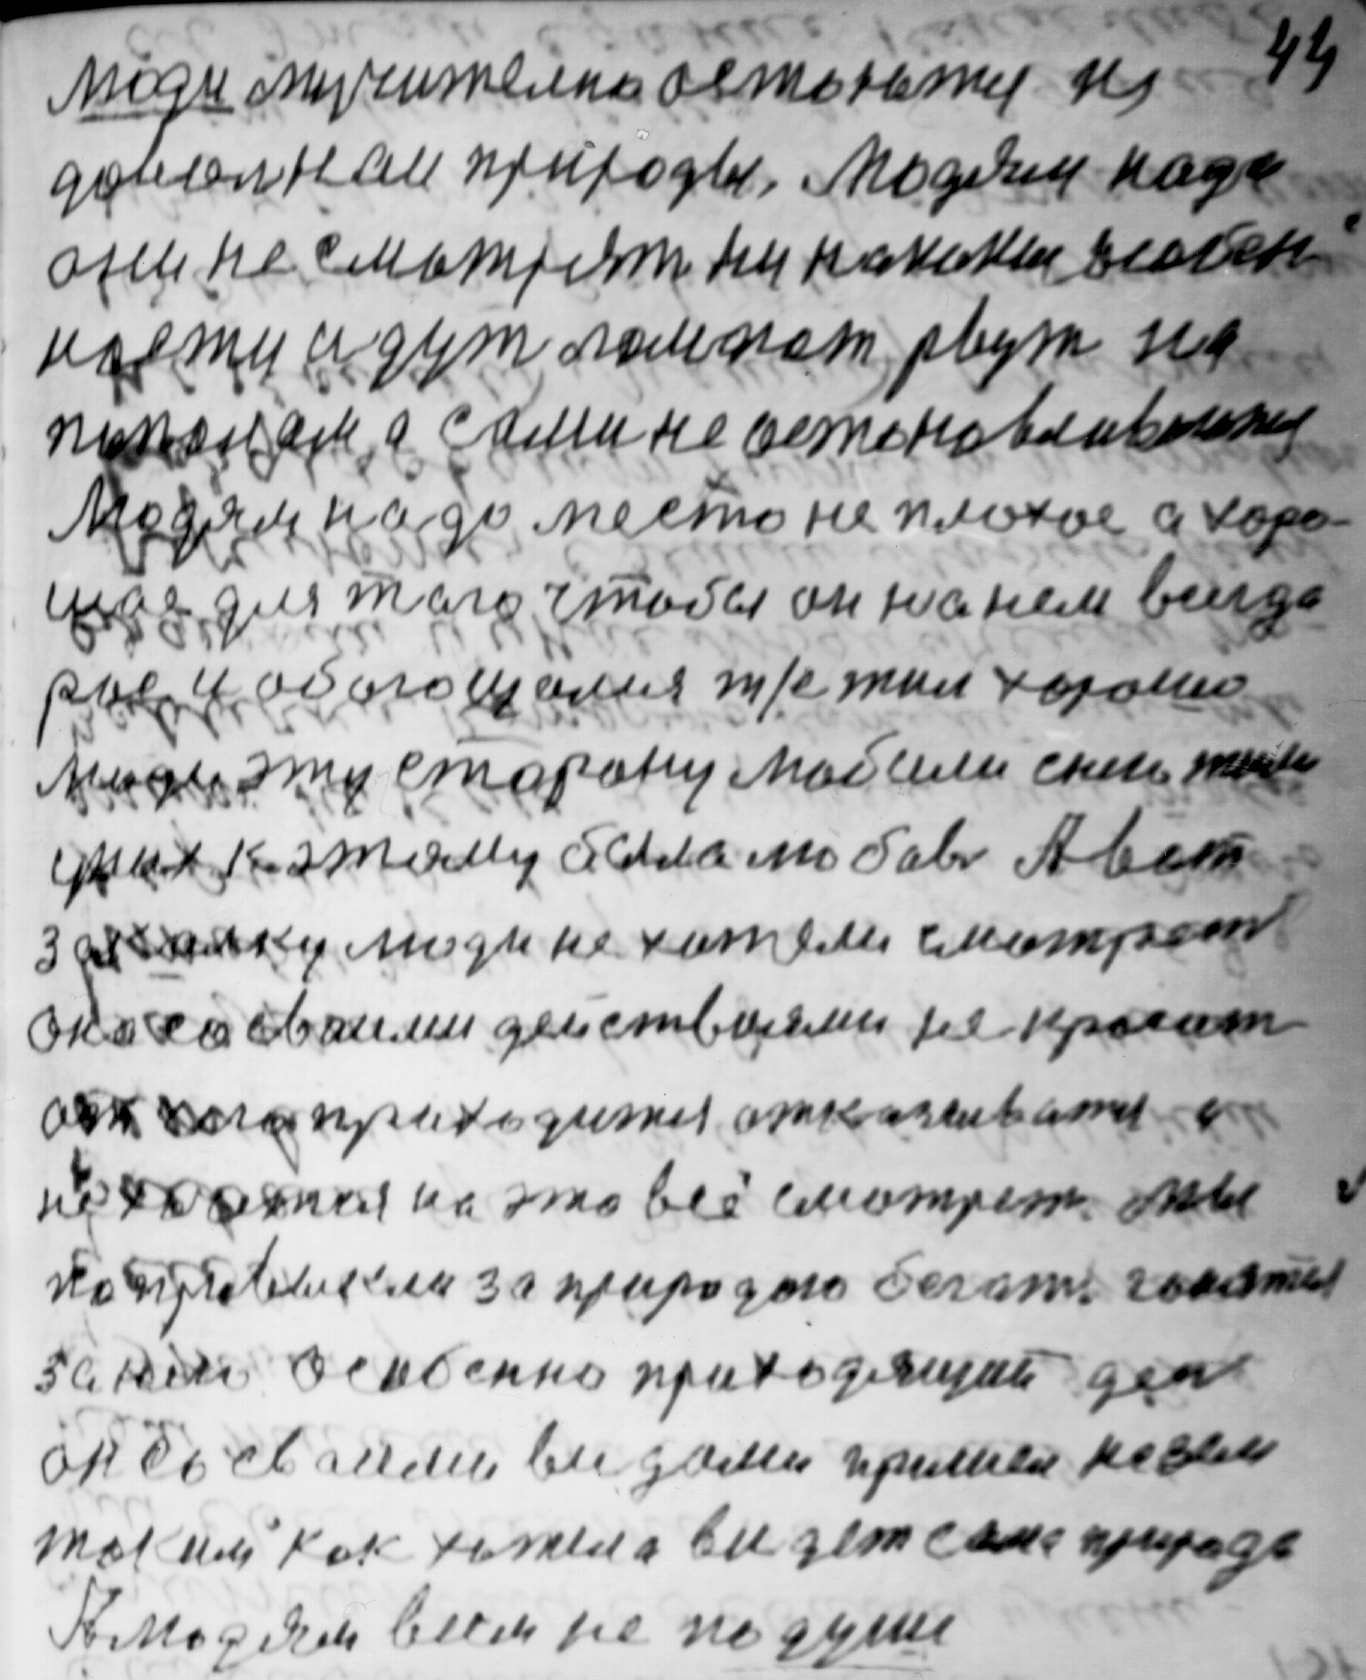 44
Люди мучително остаются не
доволнои природы. Людям надо
они не смотрят ни накакии особен
ности идут ломают рвут на
пополам а сами не остоновливаются
Людям надо место не плохое а хоро-
шое для того чтобы он на нем всигда
рос и обогощался т/е жил хорошо
люди эту сторону любили снею жили
уних к этому была любовь А вот
закалку люди не хотели смотреть
она со своими действиями не красит
от кого приходится отказыватся и
не хочется на это всё смотреть. Мы
направились за природою бегать гонятся
за нею особенно приходящий ден
он со своими видами пришел не зем
таким как хотела видет сама природа
К людям всем не по душе